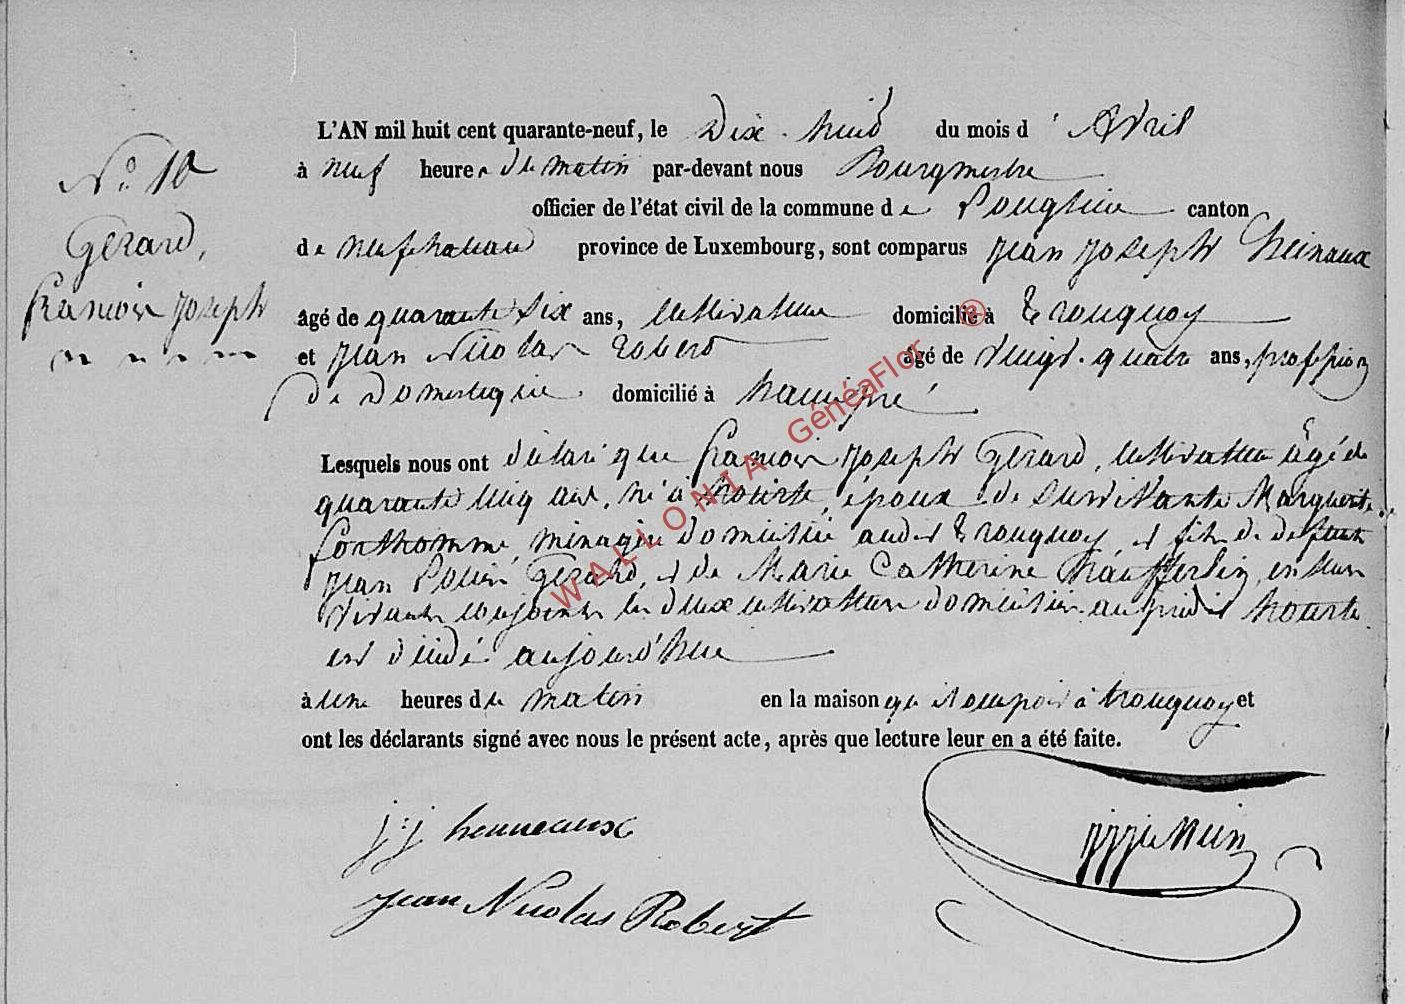 N.° 10
Gerard,
francois joseph
L'AN mil huit cent quarante-neuf, le Dix-huit du mois d'Avril
à neuf heures du matin par-devant nous Bourgmestre
officier de l'état civil de la commune de canton
de neufchateau province de Luxembourg, sont comparus jean joseph heinaux
âgé de quarante six ans, cultivateur domicilié à tronquoy
et jean Nicolas robert âgé de vingt-quatre ans, profession
de domestique domicilié à hamipré
Lesquels nous ont déclaré que francois joseph Gerard, cultivateur âgé de
quarante cinq ans, né à hourte, époux de survivante Marguerite
fonthomme, ménagère domiciliée audit tronquoy, et fils de defunt
jean Gerard, et de Marie Catherine en leur
vivant conjoints les deux cultivateurs domiciliés audit hourte
est décédé aujourd'hui
à une heures du matin en la maison qu'il occupoit à tronquoy et
ont les déclarants signé avec nous le présent acte, après que lecture leur en a été faite.
j:j henneaux
jean Nicolas Robert
WALLONIA GénéaFlor ®